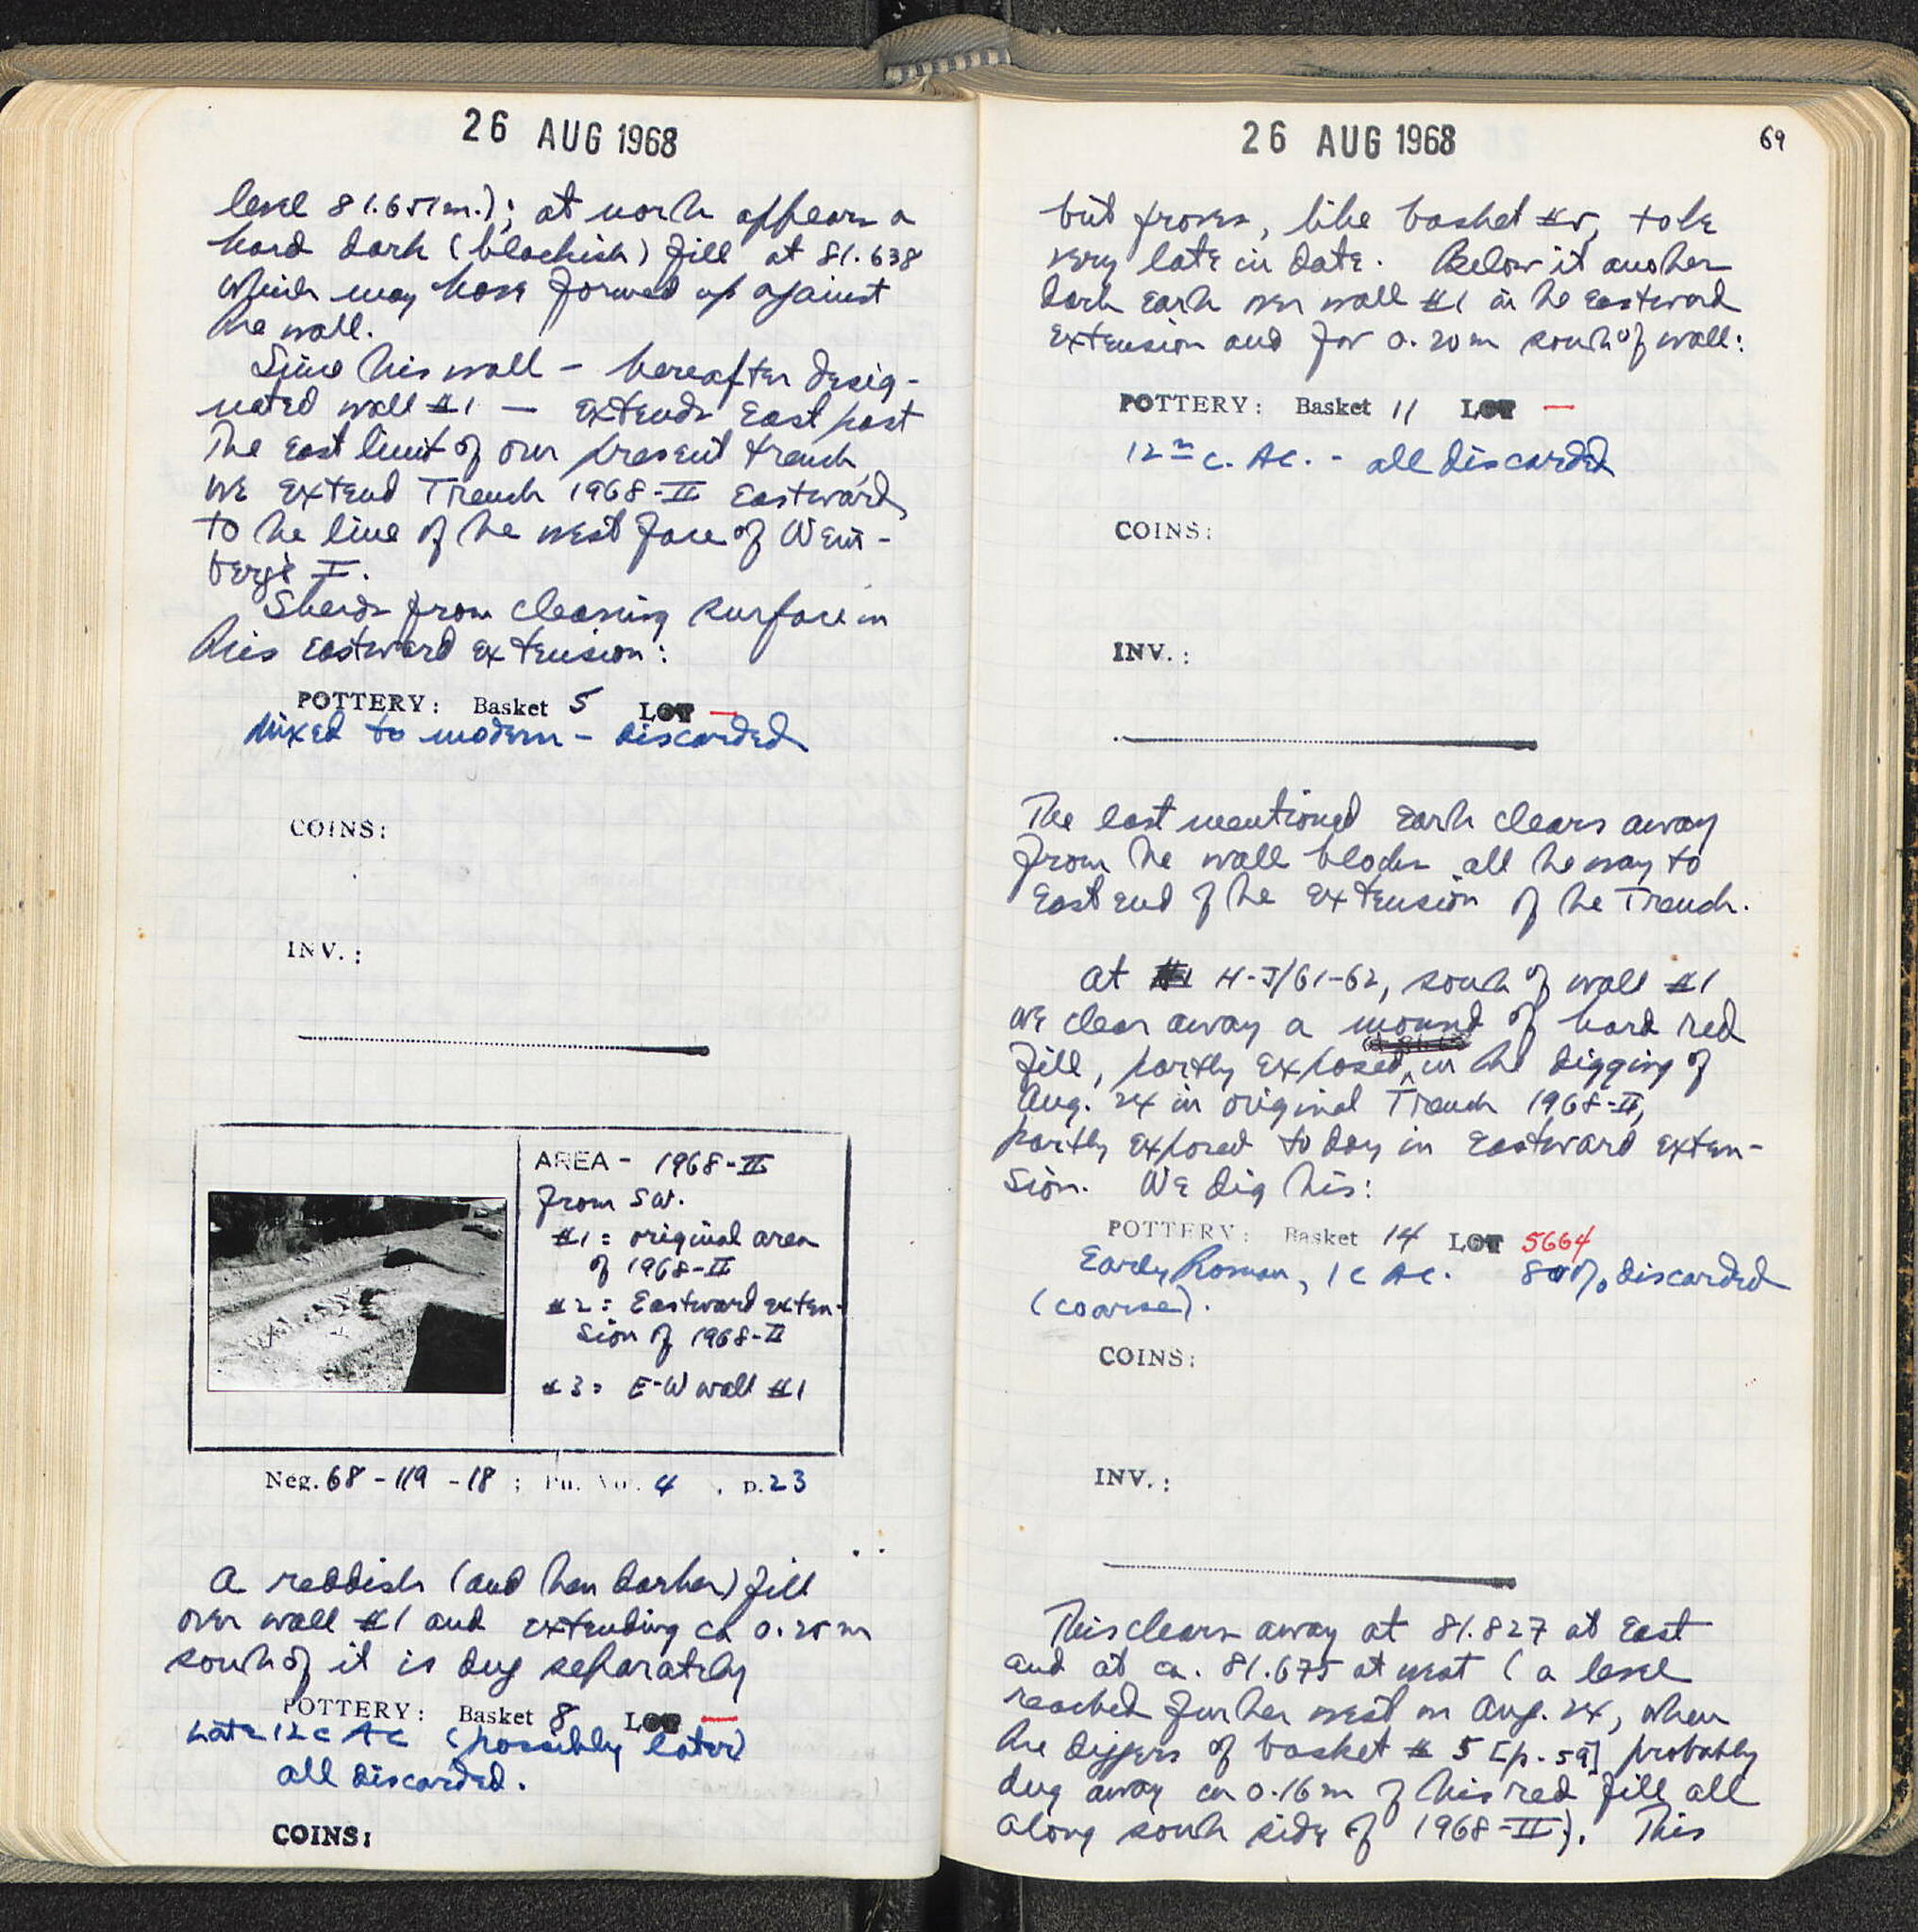 26 AUG 1968
level 81.651m.); at north appears a
hard dark (blackish) fill at 81.638
which may have formed up against
the wall.
Since this wall – hereafter desig-
nated wall #1 — extends East past
The East limit of our present trench,
we extend Trench 1968-II Eastward,
to the line of the west face of Wein-
berg's I.
Sherds from cleaning surface in
this eastward extension:
POTTERY: Basket 5 LOT —
Mixed to modern – discarded
COINS:
INV.:
AREA - 1968-II
from SW.
#1: original area
of 1968-II
#2: Eastward exten-
sion of 1968-II
#3: E-W wall #1
Neg. 68-119-18; Ph. Vol. 4, p. 23
A reddish (and then darker) fill
over wall #1 and extending ca 0.20 m
south of it is dug separately
POTTERY: Basket 8 LOT —
Late 12 c AC (possibly later)
all discarded.
COINS:
26 AUG 1968
69
but proves, like basket #5, to be
very late in date. Below it another
dark earth over wall #1 in the Eastward
extension and for 0.20m south of wall:
POTTERY: Basket 11 LOT —
12th c. AC. - all discarded
COINS:
INV.:
The last mentioned Earth clears away
from the wall blocks all the way to
East end of the Extension of the Trench.
At H-J/61-62, south of wall #1
we clear away a mound of hard red
fill, partly exposed in the digging of
Aug. 24 in original Trench 1968-II,
partly exposed today in Eastward exten-
sion. We dig this:
POTTERY: Basket 14 LOT 5664
Early Roman, 1 C AC. 80% discarded
(coarse).
COINS:
INV.:
This clears away at 81.827 at East
and at ca. 81.675 at west (a level
reached further west on Aug. 24, when
the diggers of basket # 5 [p. 59] probably
dug away ca 0.16m of this red fill all
along south side of 1968-II). This